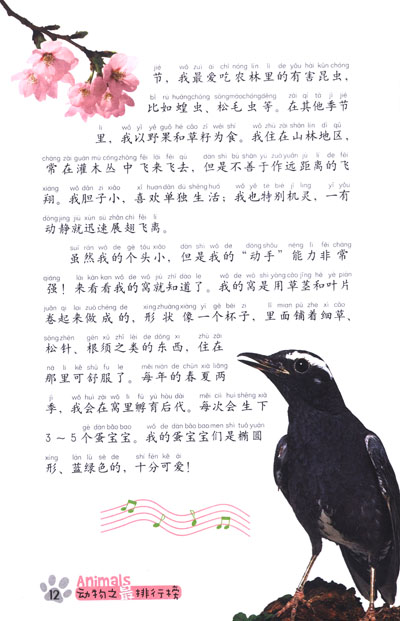 jié wǒ zuì ài chī nóng lín lǐ de yǒu hài kūn chóng
节，我最爱吃农林里的有害昆虫，
bǐ rú huáng chóng sōng máo chóng děng zài qí tā jì jié
比如蝗虫、松毛虫等。在其他季节
lǐ wǒ yǐ yě guǒ hé cǎo zǐ wéi shí wǒ zhù zài shān lín dì qū
里，我以野果和草籽为食。我住在山林地区，
cháng zài guàn mù cóng zhōng fēi lái fēi qù dàn shì bú shàn yú zuò yuǎn jù lí de fēi
常在灌木丛中飞来飞去，但是不善于作远距离的飞
xiáng wǒ dǎn zi xiǎo xǐ huan dān dú shēng huó wǒ yě tè bié jī líng yì yǒu
翔。我胆子小，喜欢单独生活；我也特别机灵，一有
dòng jìng jiù xùn sù zhǎn chì fēi lí
动静就迅速展翅飞离。
suī rán wǒ de gè tóu xiǎo dàn shì wǒ de dòng shǒu néng lì fēi cháng
虽然我的个头小，但是我的“动手”能力非常
qiáng lái kàn kan wǒ de wō jiù zhī dào le wǒ de wō shì yòng cǎo jīng hé yè piàn
强！来看看我的窝就知道了。我的窝是用草茎和叶片
juǎn qǐ lái zuò chéng de xíng zhuàng xiàng yí gè bēi zi lǐ miàn pū zhe xì cǎo
卷起来做成的，形状像一个杯子，里面铺着细草，
sōng zhēn gēn xū zhī lèi de dōng xi zhù zài
松针、根须之类的东西，住在
nà lǐ kě shū fu le měi nián de chūn xià liǎng
那里可舒服了。每年的春夏两
jì wǒ huì zài wō lǐ fū yù hòu dài měi cì huì shēng xià
季，我会在窝里孵育后代。每次会生下
gè dàn bǎo bao wǒ de dàn bǎo bao men shì tuǒ yuán
3～5个蛋宝宝。我的蛋宝宝们是椭圆
xíng lán lǜ sè de shí fēn kě ài
形、蓝绿色的，十分可爱！
Animals
12 动物之最排行榜